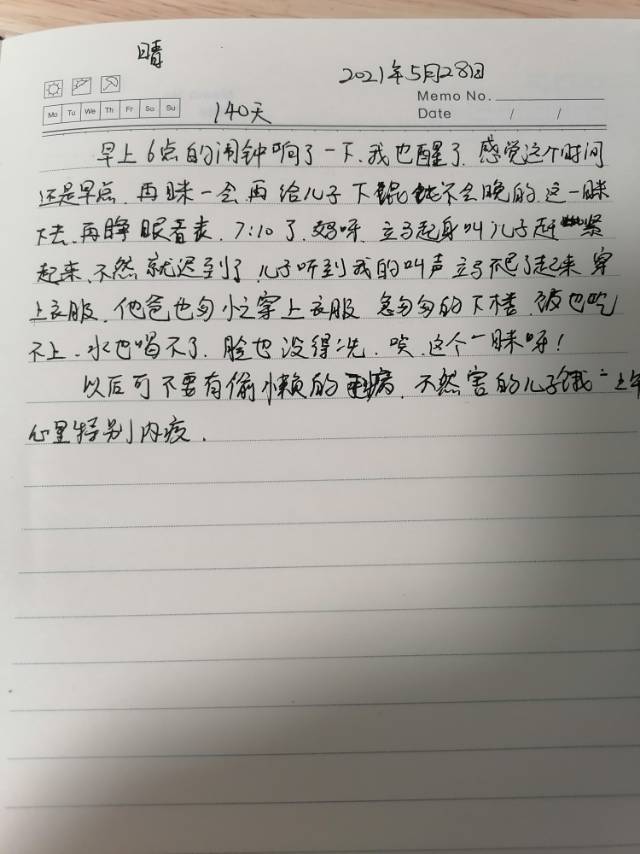 晴
2021年5月28日
Memo No.
Mo Tu We Th Fr Sa Su
140天
Date / /
早上6点的闹钟响了一下.我也醒了.感觉这个时间
还是早点.再眯一会再给儿子下馄饨不会晚的.这一眯
下去.再睁眼看表.7:10了.妈呀.立马起身叫儿子赶紧
起来.不然就迟到了.儿子听到我的叫声立马爬了起来穿
上衣服.他爸也匆忙穿上衣服 急匆匆的下楼.饭也吃
不上.水也喝不了.脸也没得洗.唉.这个一眯呀!
以后可不要有偷懒的毛病.不然害的儿子饿一上午
心里特别内疚.